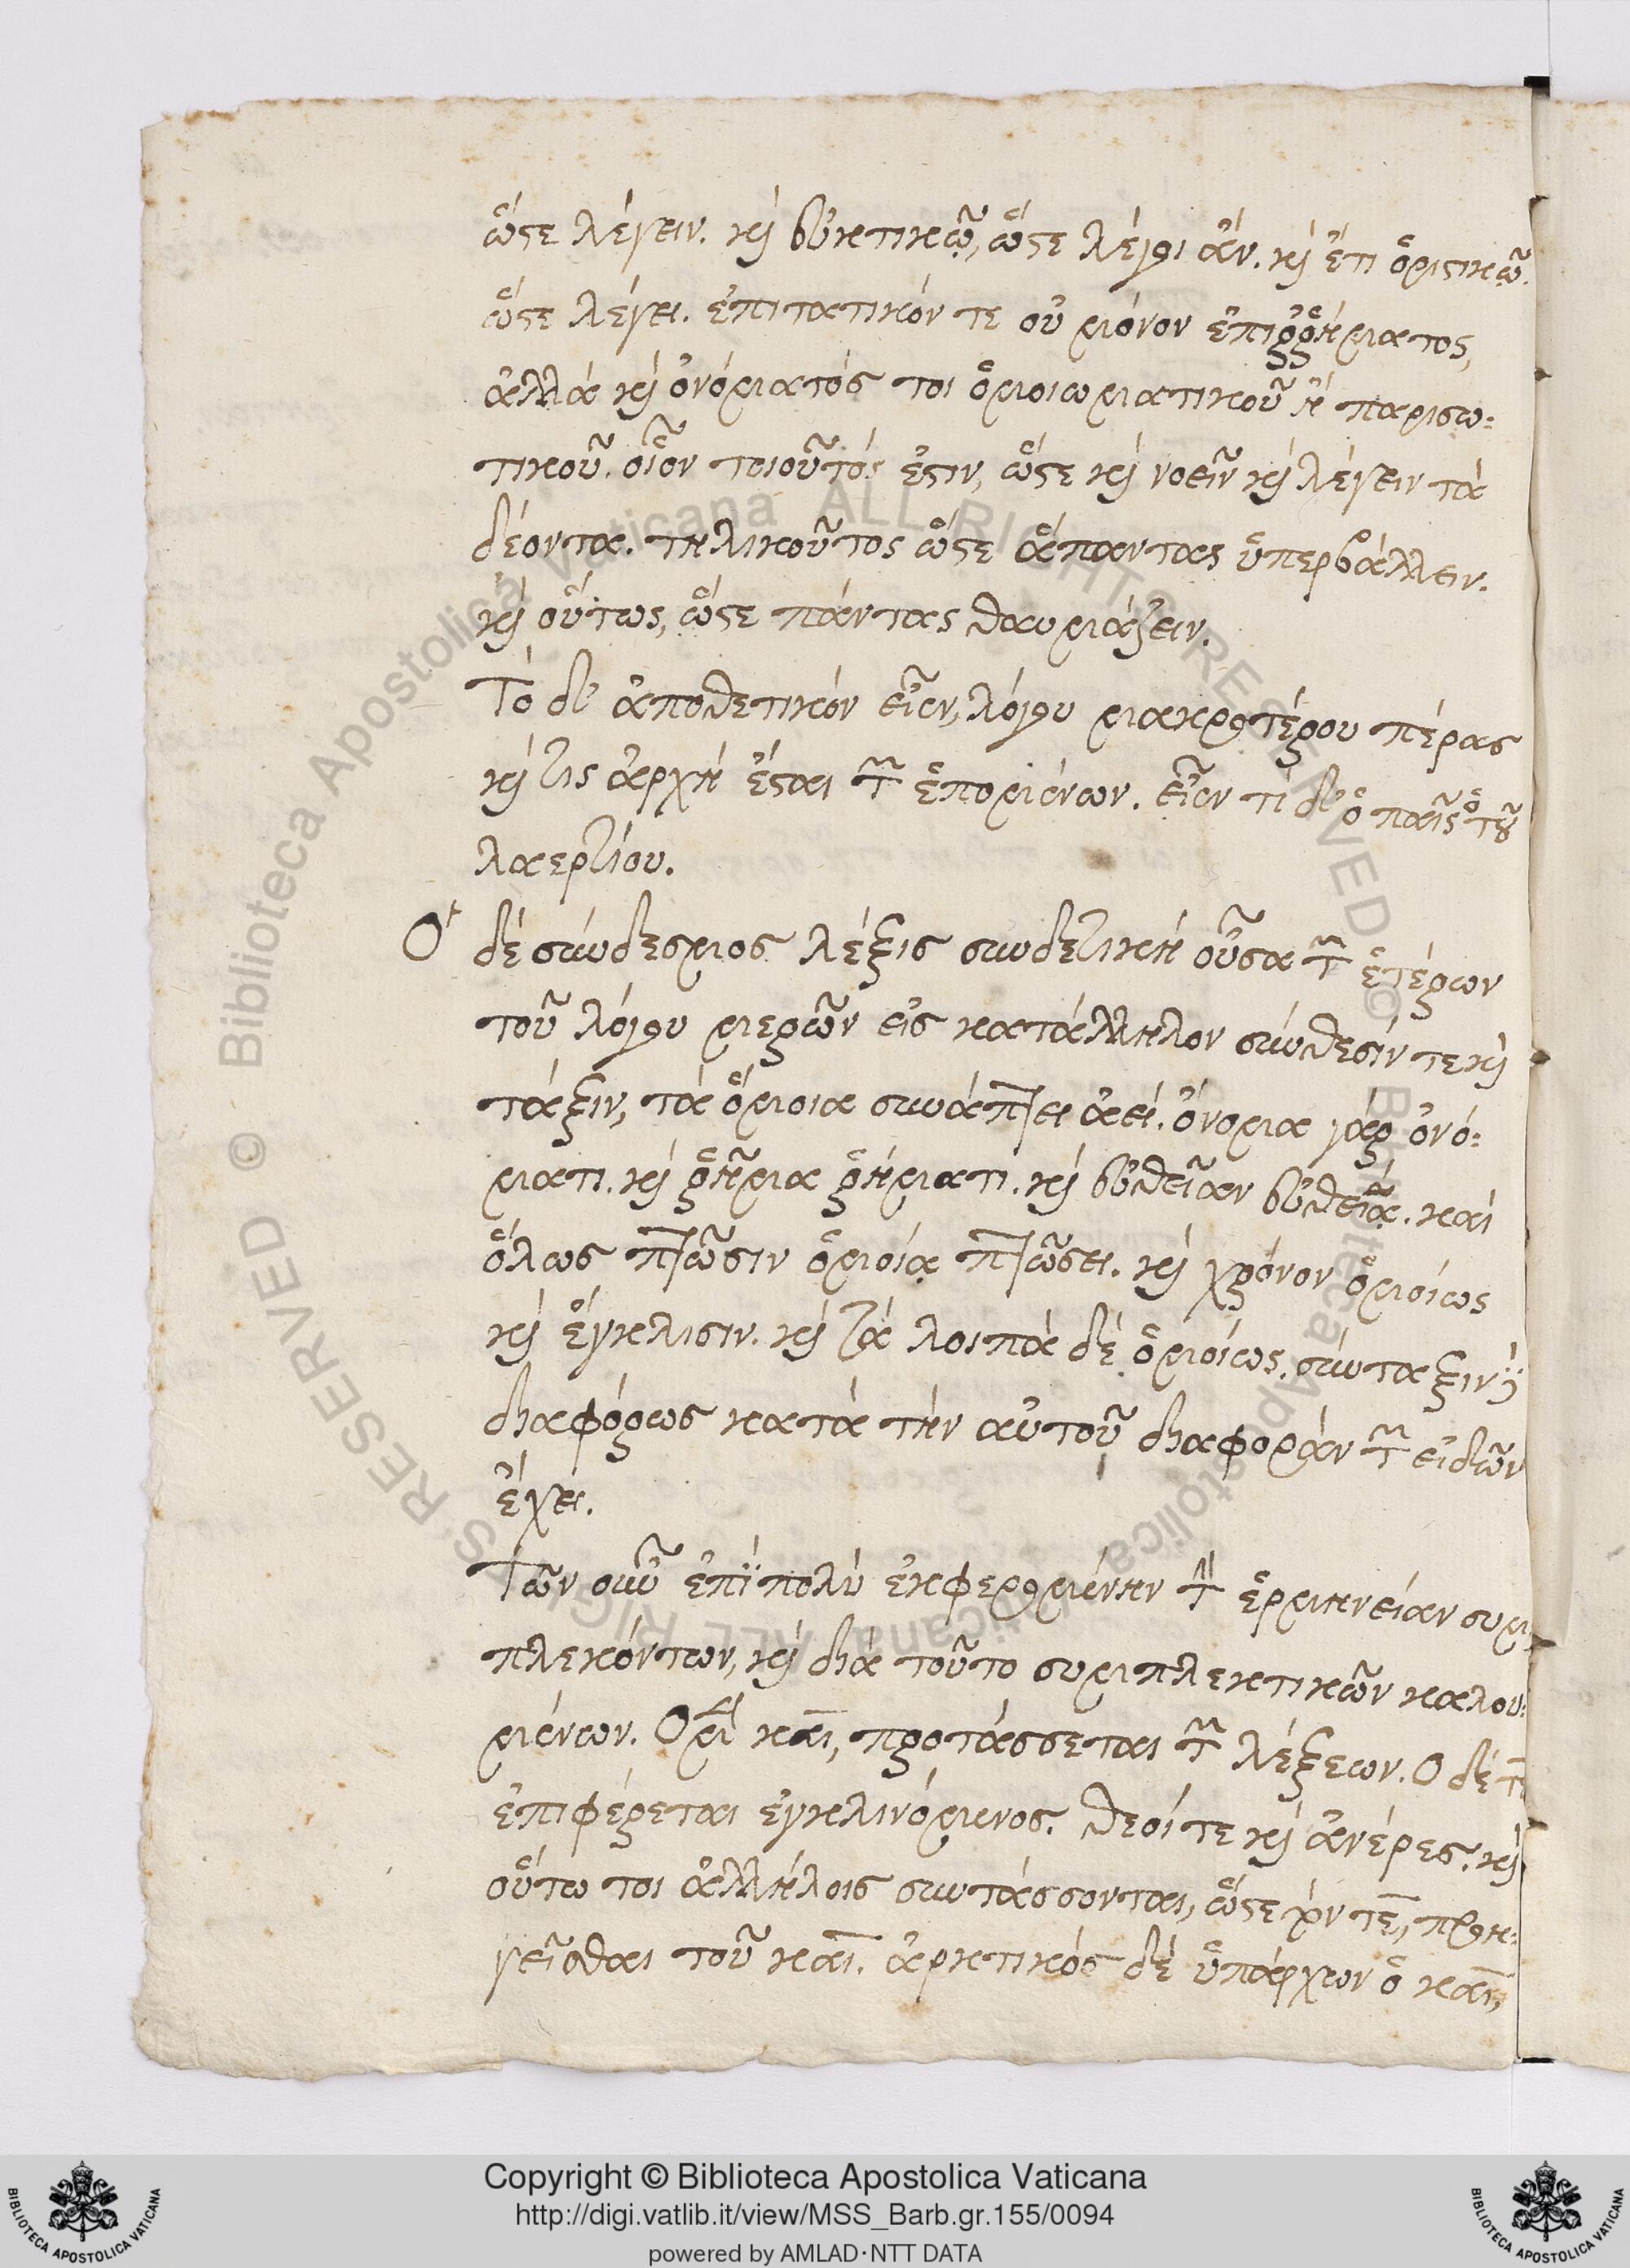 ὥστε λέγειν. καὶ εὐκτικῷ, ὥστε λέγοι ἄν. καὶ ἔτι ὁριστικῷ.
ὥστε λέγει. ἐπιτατικόν τε οὐ μόνον ἐπιῤῥήματος,
ἀλλὰ καὶ ὀνόματός τοι ὁμοιωματικοῦ ἢ παρισω-
τικοῦ. οἷον τοιοῦτός ἐστιν, ὥστε καὶ νοεῖν καὶ λέγειν τὰ
δέοντα. τηλικοῦτος ὥστε ἅπαντας ὑπερβάλλειν.
καὶ οὕτως, ὥστε πάντας θαυμάζειν.
Τὸ δ' ἀποθετικὸν εἶεν, λόγου μακροτέρου πέρας
καί τις ἀρχὴ ἔσται τῶν ἑπομένων. εἶεν τί δ' ὁ παῖς ὁ τοῦ
λαερτίου.
Ὁ δὲ σύνδεσμος λέξις συνδετικὴ οὖσα τῶν ἑτέρων
τοῦ λόγου μερῶν εἰς κατάλληλον σύνθεσίν τε καὶ
τάξιν, τὰ ὅμοια συνάπτει ἀεί. ὄνομα γὰρ ὀνό-
ματι. καὶ ῥῆμα ῥήματι. καὶ εὐθεῖαν εὐθείᾳ. καὶ
ὅλως πτῶσιν ὁμοίᾳ πτώσει. καὶ χρόνον ὁμοίως
καὶ ἔγκλισιν. καὶ τὰ λοιπὰ δὲ ὁμοίως. σύνταξιν
διαφόρως κατὰ τὴν αὐτοῦ διαφορὰν τῶν εἰδῶν
ἔχει.
Τῶν οὖν ἐπιπολὺ ἐκφερομένην τὴν ἑρμηνείαν συμ-
πλεκόντων, καὶ διὰ τοῦτο συμπλεκτικῶν καλου-
μένων. Ὁ μὲν καὶ, προτάσσεται τῶν λέξεων. Ὁ δὲ τε
ἐπιφέρεται ἐγκλινόμενος. θεοί τε καὶ ἀνέρες. καὶ
οὕτω τοι ἀλλήλοις συντάσσονται, ὥστε τὸν τε, προη-
γεῖσθαι τοῦ καί. ἀρκτικὸς δὲ ὑπάρχων ὁ καὶ,
Copyright © Biblioteca Apostolica Vaticana
http://digi.vatlib.it/view/MSS_Barb.gr.155/0094
powered by AMLAD·NTT DATA